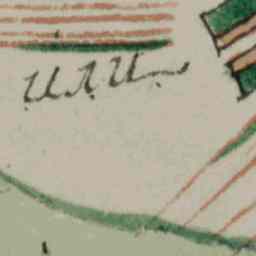 или